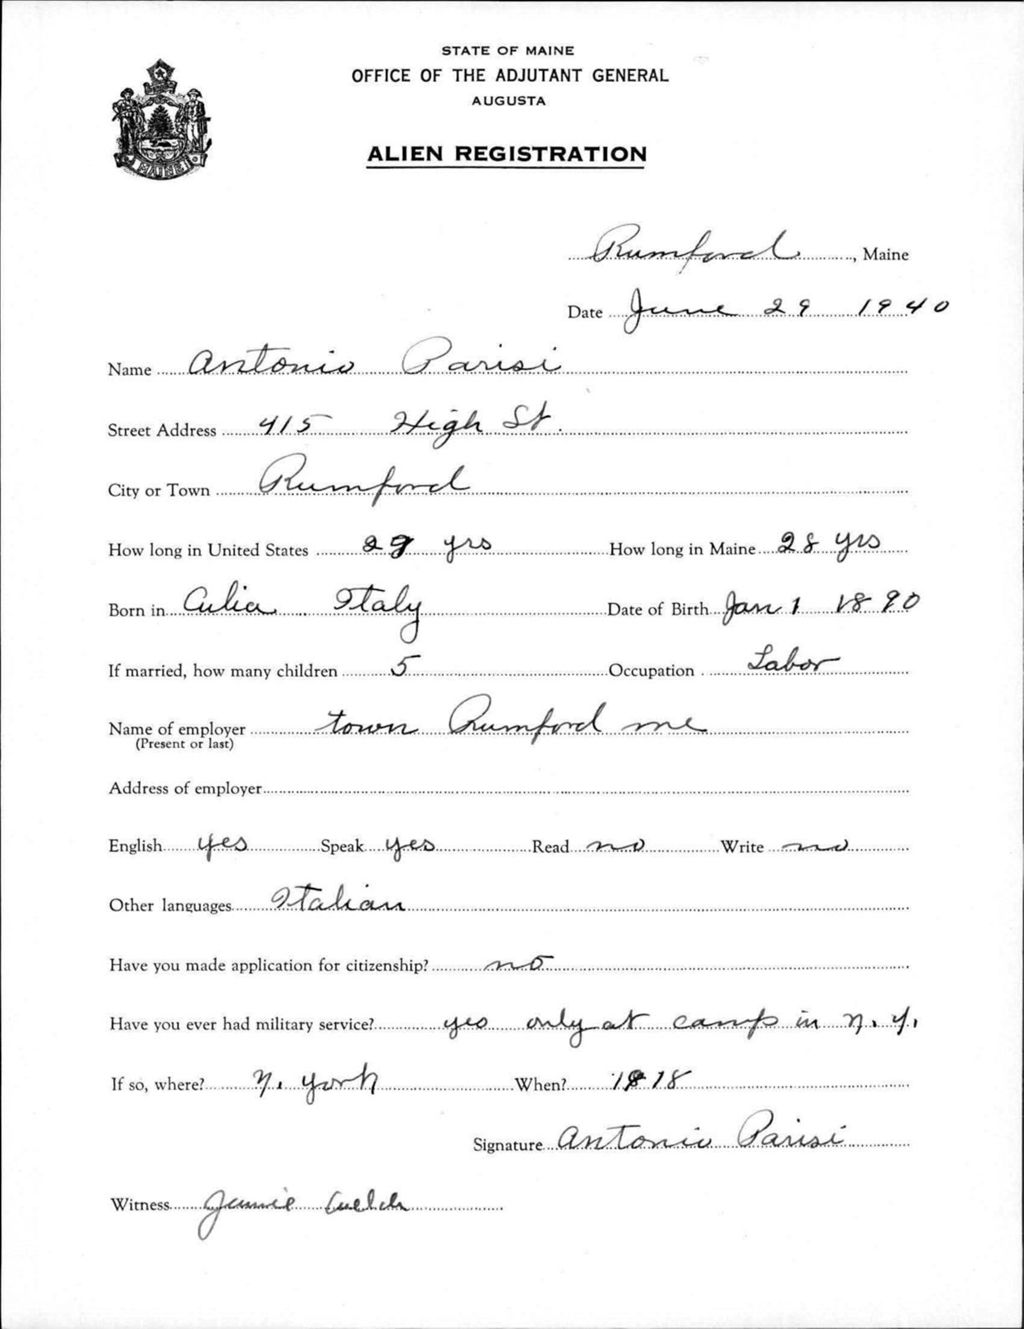 STATE OF MAINE
OFFICE OF THE ADJUTANT GENERAL
AUGUSTA
ALIEN REGISTRATION
MAINE
Rumford, Maine
Date June 29 1940
Name Antonio Parisi
Street Address 415 High St.
City or Town Rumford
How long in United States 29 yrs How long in Maine 28 yrs
Born in Italy Date of Birth Jan 1 1890
If married, how many children 5 Occupation Labor
Name of employer town Rumford me
(Present or last)
Address of employer
English yes Speak yes Read no Write no
Other languages Italian
Have you made application for citizenship? no
Have you ever had military service? yes only at camp in N. Y.
If so, where? N. York When? 1918
Signature Antonio Parisi
Witness Jennie